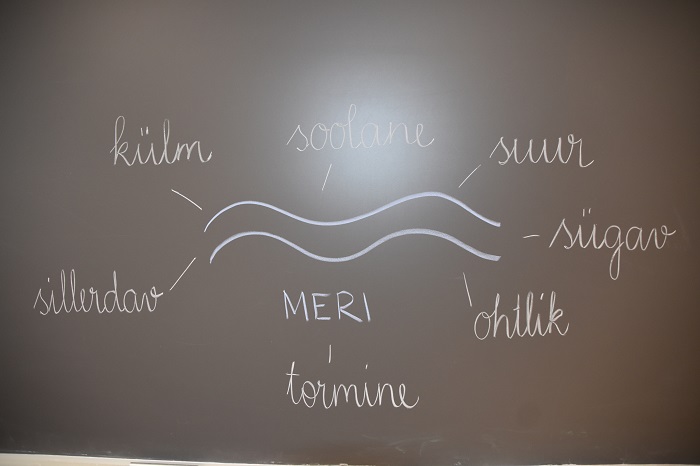 külm
soolane
suur
sügav
sillerdav
MERI
ohtlik
tormine